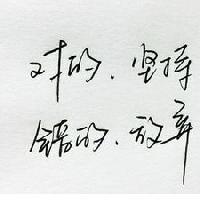 对的、坚持
错的、放弃